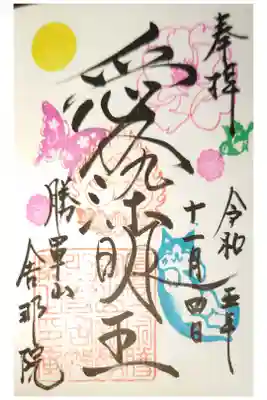 奉拝
令和五年
十一月四日
愛染明王
勝軍山
舎那院